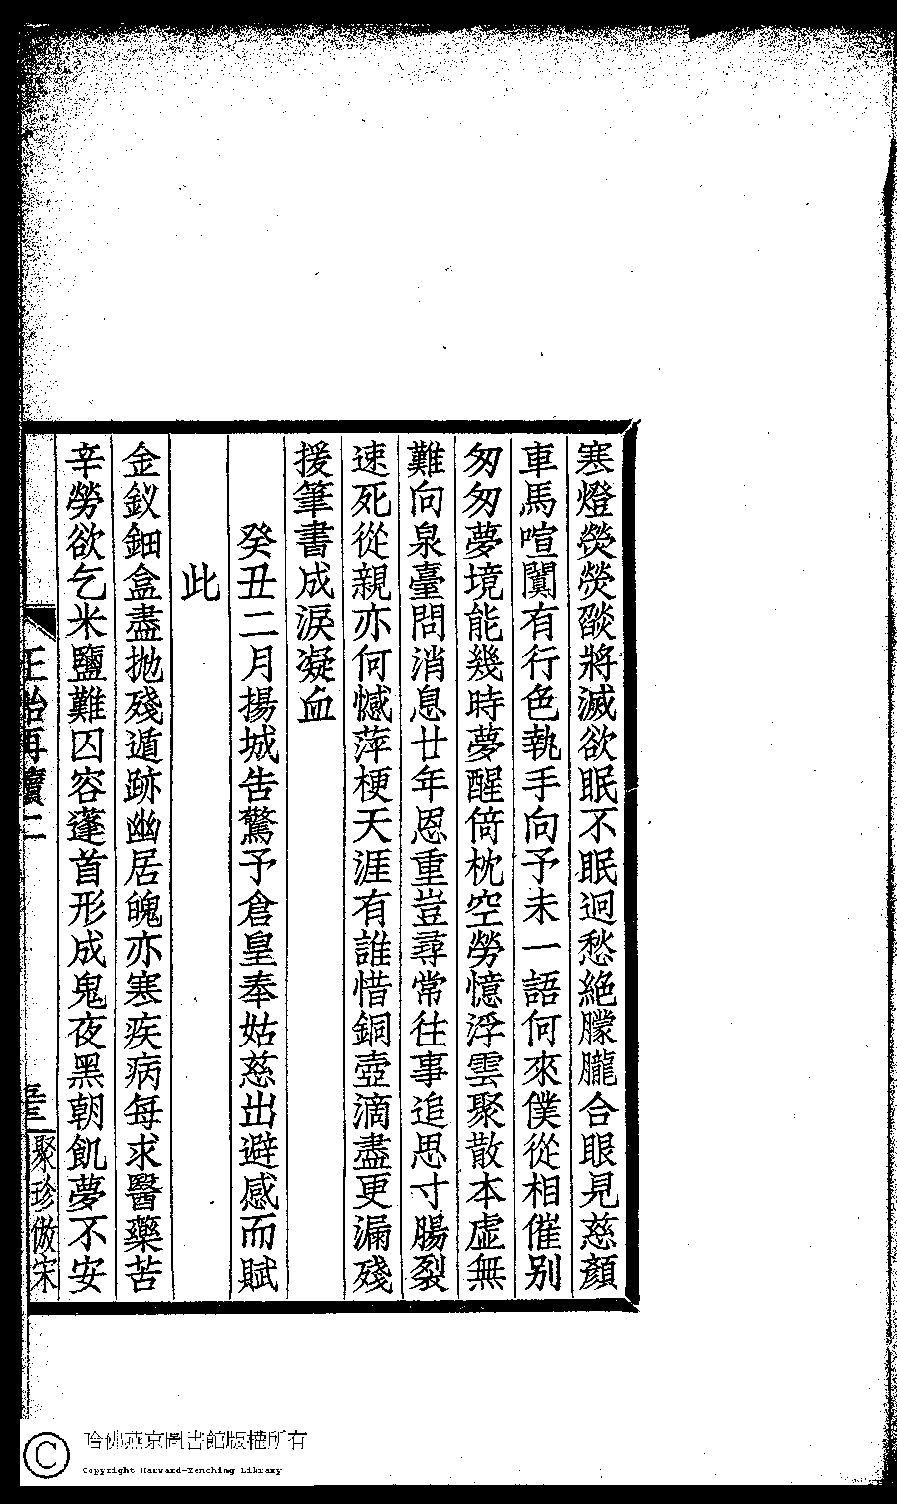 寒燈熒熒燄將滅欲眠不眠迴愁絕朦朧合眼見慈顏
車馬喧闐有行色執手向予未一語何來僕從相催別
匆匆夢境能幾時夢醒倚枕空勞憶浮雲聚散本虛無
難向泉臺問消息廿年恩重豈尋常往事追思寸腸裂
速死從親亦何憾萍梗天涯有誰惜銅壺滴盡更漏殘
援筆書成淚凝血
癸丑二月揚城告驚予倉皇奉姑慈出避感而賦
此
金釵鈿盒盡拋殘遁跡幽居魄亦寒疾病每求醫藥苦
辛勞欲乞米鹽難囚容蓬首形成鬼夜黑朝飢夢不安
正始再續二
聚珍倣宋
哈佛燕京圖書館版權所有
Copyright Harvard-Yenching Library